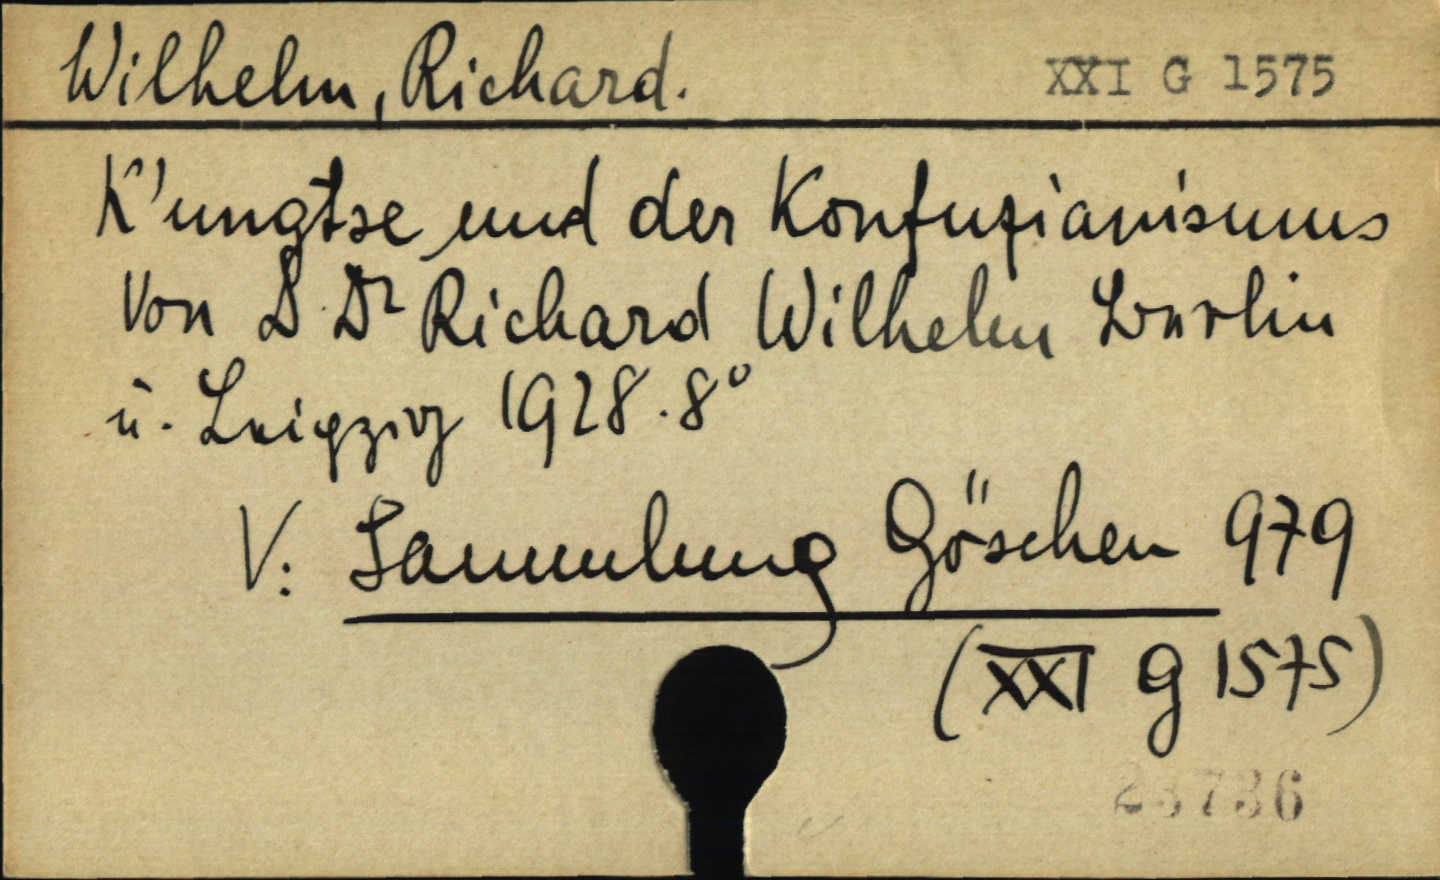 Wilhelm, Richard.
XXI G 1575
K'ungtse und der Konfuzianismus
Von D. Dr Richard Wilhelm Berlin
u. Leipzig 1928. 8°
V: Sammlung Göschen 979
(XXI G 1575)
23736